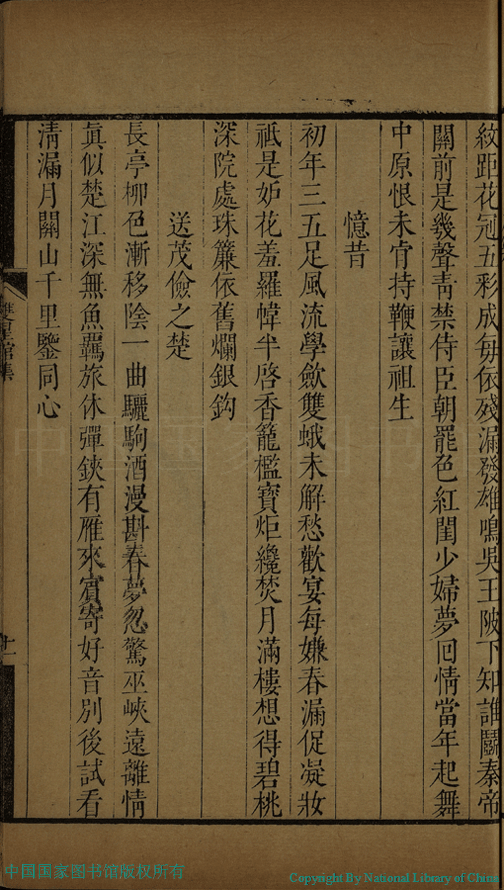 紋距花冠五彩成每依殘漏發雄鳴吳王陂下知誰鬬秦帝
關前是幾聲靑禁侍臣朝罷色紅閨少婦夢回情當年起舞
中原恨未肯持鞭讓祖生
憶昔
初年三五足風流學歛雙蛾未解愁歡宴每嫌春漏促凝妝
祇是妒花羞羅幃半啓香籠檻寶炬纔焚月滿樓想得碧桃
深院處珠簾依舊爛銀鈎
送茂儉之楚
長亭柳色漸移陰一曲驪駒酒漫斟春夢忽驚巫峽遠離情
眞似楚江深無魚羈旅休彈鋏有雁來賓寄好音別後試看
淸漏月關山千里鑒同心
館集
十一
中国国家图书馆版权所有
Copyright By National Library of China